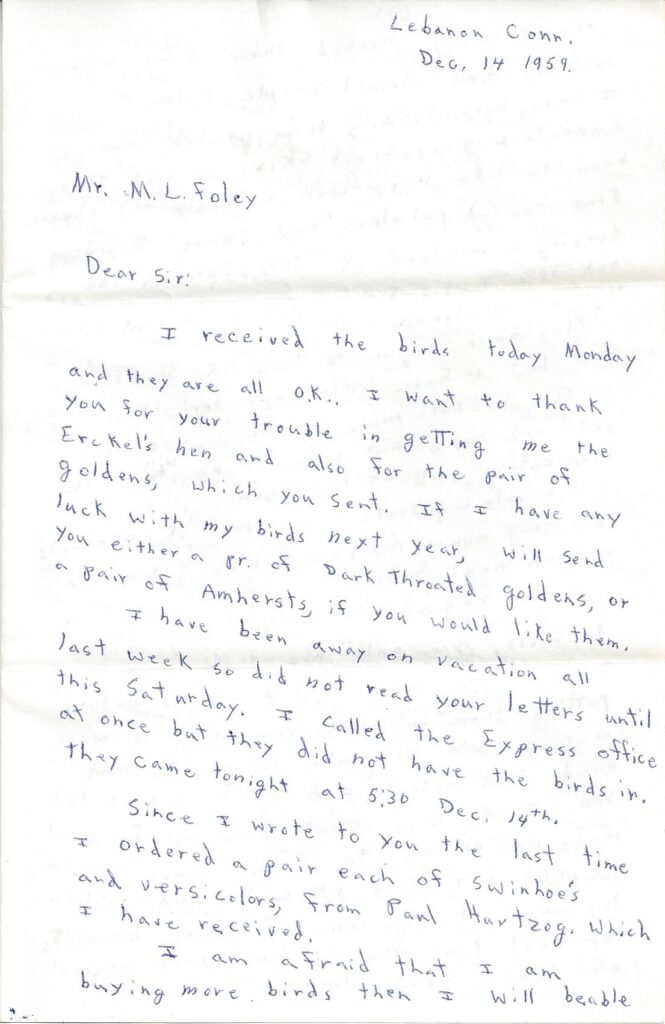 Lebanon Conn.
Dec. 14 1959.
Mr. M. L. Foley
Dear Sir:
I received the birds today Monday
and they are all O.K.. I want to thank
you for your trouble in getting me the
Erckel's hen and also for the pair of
goldens, which you sent. If I have any
luck with my birds next year, will send
you either a pr. of Dark Throated goldens, or
a pair of Amhersts, if you would like them.
I have been away on vacation all
last week so did not read your letters until
this Saturday. I called the Express office
at once but they did not have the birds in.
they came tonight at 5:30 Dec. 14th.
Since I wrote to you the last time
I ordered a pair each of Swinhoe's
and versicolors, from Paul Hurtzog. which
I have received.
I am afraid that I am
buying more birds then I will beable